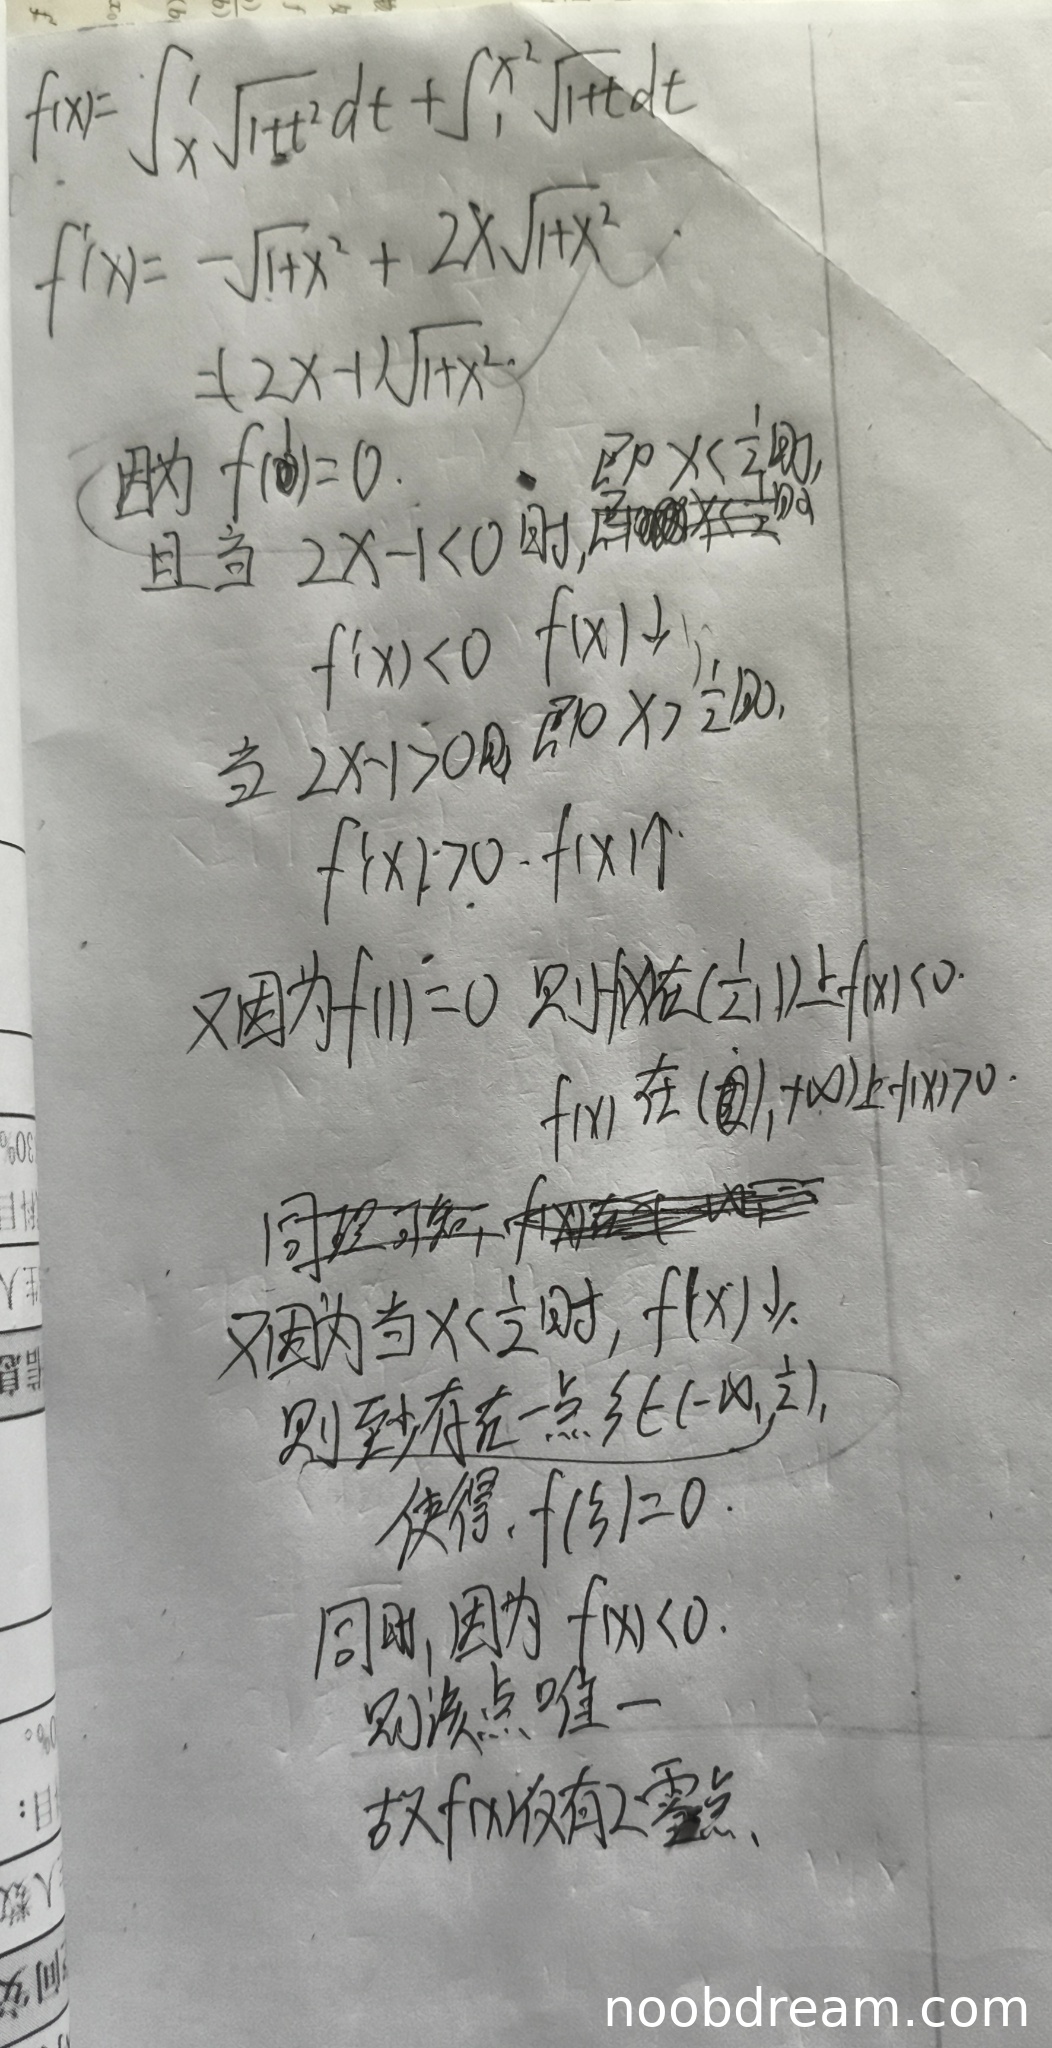 f(x)=∫_x^1 √(1+t²) dt + ∫_1^{x²} √(1+t) dt
f'(x)= -√(1+x²) + 2x√(1+x²)
=(2x-1)√(1+x²).
因为 f(1)=0.
即 x<1/2时,
且当 2x-1<0时,
f'(x)<0 f(x)↓
当 2x-1>0时, 即 x>1/2时,
f'(x)>0. f(x)↑.
又因为f(1)=0 则f(x)在(1/2,1)上f(x)<0.
f(x) 在(1,+∞)上f(x)>0.
同理可知,
又因为当x<1/2时, f(x)↓.
则至少存在一点ξ∈(-∞,1/2),
使得, f(ξ)=0.
同时, 因为 f'(x)<0.
则该点唯一
故f(x)仅有2零点、
noobdream.com